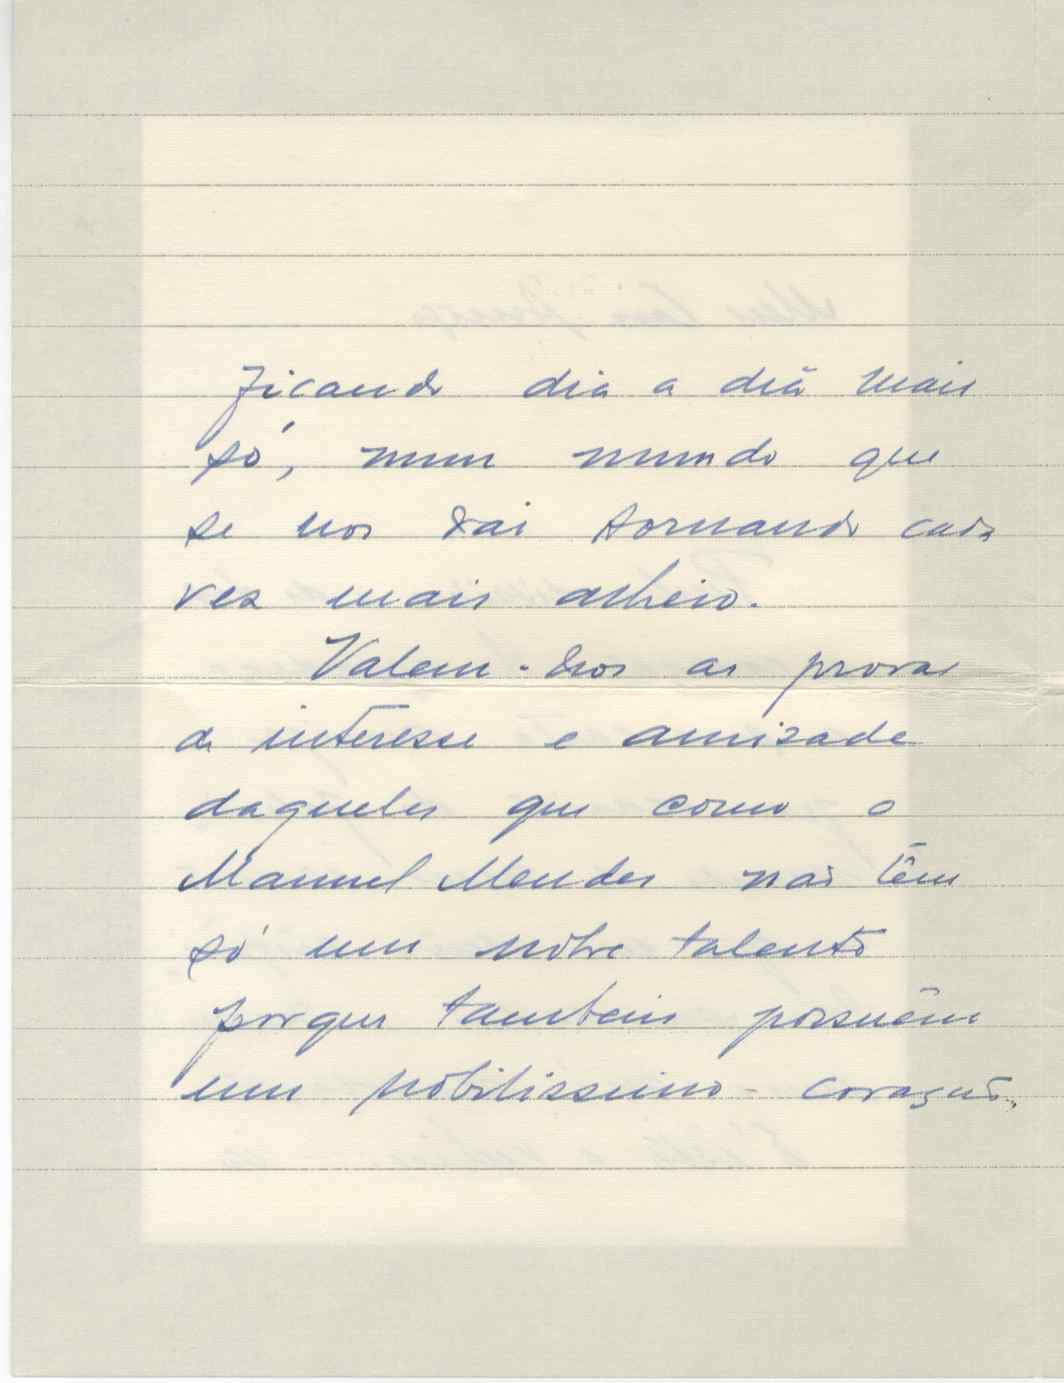 Ficando dia a dia mais
só, num mundo que
se nos vai tornando cada
vez mais alheio.
Valem-nos as provas
de interesse e amizade
daqueles que como o
Manuel Mendes não têm
só um nobre talento
porque tambem possuêm
um nobilissimo coração.